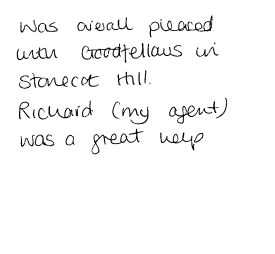 Was overall pleased
with Goodfellows in
Stonecot Hill.
Richard (my agent)
was a great help.